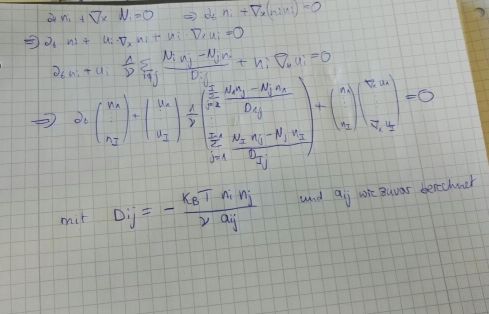 ∂t ni + ∇x Ni = 0 ⇒ ∂t ni + ∇x (ni ui) = 0
⇒ ∂t ni + ui ∇x ni + ni ∇x ui = 0
∂t ni + ui 1/ν Σ i≠j (Ni nj − Nj ni)/Dij + ni ∇x ui = 0
⇒ ∂t (n1 ⋮ nI) + (u1 ⋮ uI) 1/ν (Σ j=2 I (N1 nj − Nj n1)/D1j ⋮ Σ j=1 I-1 (NI nj − Nj nI)/DIj) + (n1 ⋮ nI) (∇x u1 ⋮ ∇x uI) = 0
mit Dij = − (KB T ni nj)/(ν aij) und aij wie zuvor berechnet